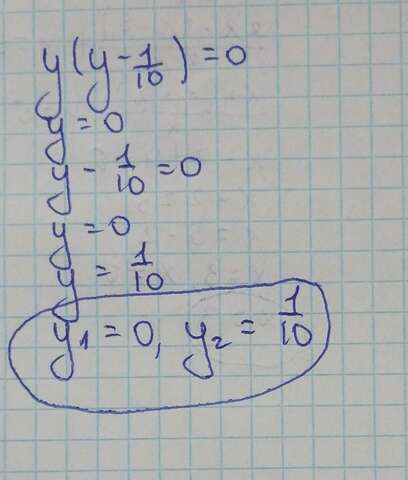 y(y-1/10)=0
y=0
y-1/10=0
y=0
y=1/10
y₁=0, y₂=1/10